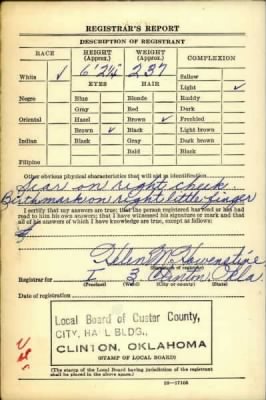 REGISTRAR'S REPORT
DESCRIPTION OF REGISTRANT
RACE
HEIGHT (Approx.)
WEIGHT (Approx.)
COMPLEXION
White ✓
6' 2¼"
237
Sallow
EYES
HAIR
Light ✓
Negro
Blue
Blonde
Ruddy
Gray
Red
Dark
Oriental
Hazel
Brown ✓
Freckled
Brown ✓
Black
Light brown
Indian
Black
Gray
Dark brown
Bald
Black
Filipino
Other obvious physical characteristics that will aid in identification
Scar on right cheek.
Birthmark on right little finger
I certify that my answers are true; that the person registered has read or has had
read to him his own answers; that I have witnessed his signature or mark and that
all of his answers of which I have knowledge are true, except as follows:
Helen M.
(Signature of registrar)
Registrar for I 3 Clinton, Okla.
(Precinct) (Ward) (City or county) (State)
Date of registration
Local Board of Custer County,
CITY, HALL BLDG.,
CLINTON, OKLAHOMA
(STAMP OF LOCAL BOARD)
(The stamp of the Local Board having jurisdiction of the registrant
shall be placed in the above space.)